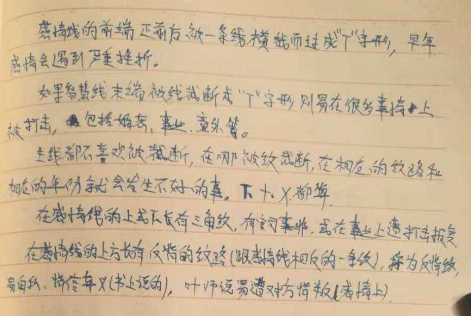 感情线的前端正前方被一条线横截而过成"丁"字形，早年
感情会遇到严重挫折。
如果智慧线末端被线截断成"丁"字形，则易在很多事情上
被打击，包括婚姻、事业、意外等。
主线都不喜欢被截断，在哪被纹截断，在相应的纹路和
相应的年份就会发生不好的事。丁、十、X、都算
在感情线的上或下长有三角纹，有官司事非，或在事业上遭打击报复
在感情线的上方长有反情的纹路（跟感情线相反的一条纹），称为反情纹，
易自私、情信弃义（书上说的），叶师说易遭对方背叛（感情上）